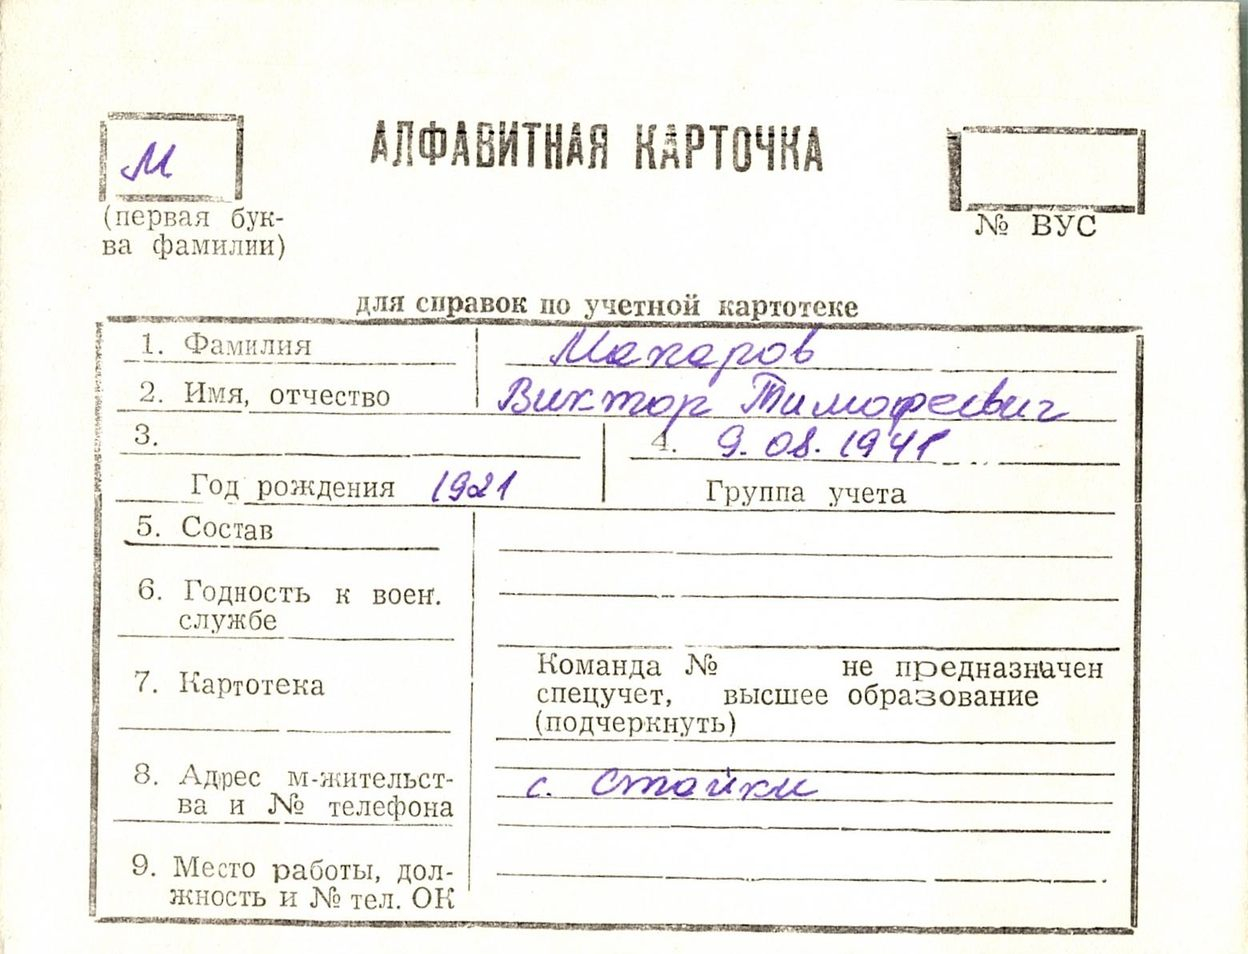 М
АЛФАВИТНАЯ КАРТОЧКА
(первая бук-
ва фамилии)
№ ВУС
для справок по учетной картотеке
1. Фамилия Макаров
2. Имя, отчество Виктор Тимофеевич
3.
4. 9.08.1941
Год рождения 1921
Группа учета
5. Состав
6. Годность к воен.
службе
7. Картотека
Команда № не предназначен
спецучет, высшее образование
(подчеркнуть)
8. Адрес м-жительст-
ва и № телефона
с. Стайки
9. Место работы, дол-
жность и № тел. ОК